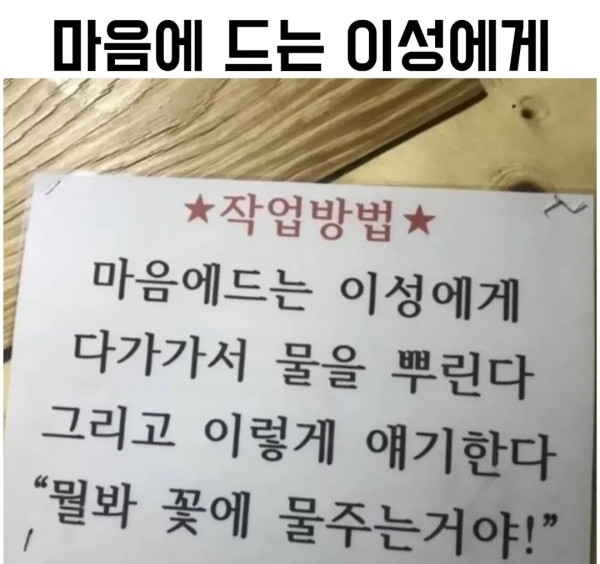 마음에 드는 이성에게
★작업방법★
마음에드는 이성에게
다가가서 물을 뿌린다
그리고 이렇게 얘기한다
“뭘봐 꽃에 물주는거야!”